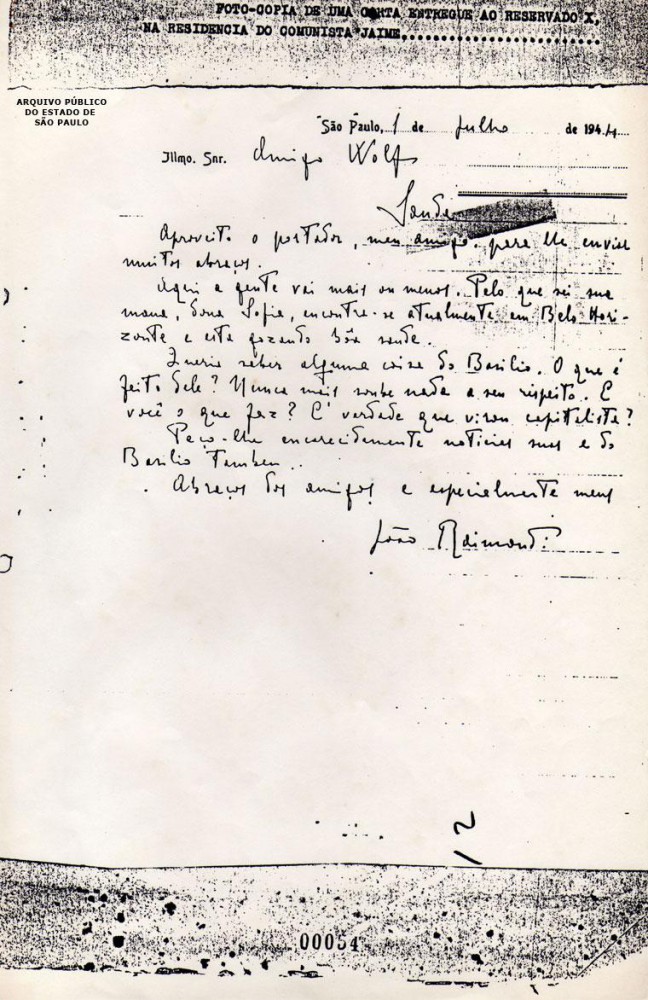 FOTO-COPIA DE UMA CARTA ENTREGUE AO RESERVADO X,
NA RESIDENCIA DO COMUNISTA JAIME........................
ARQUIVO PÚBLICO
DO ESTADO DE
SÃO PAULO
São Paulo, 1 de Julho de 1944
Illmo. Snr. Amigo Wolf
Saude
Aproveito o portador, meu amigo, para lhe enviar
muitos abraços.
Aqui a gente vai mais ou menos. Pelo que sei sua
mana, Dona Sofia, encontra-se atualmente em Belo Hori-
zonte e esta gozando bôa saude.
Queria saber alguma coisa do Basilio. O que é
feito dele? Nunca mais soube nada a seu respeito. E
você o que faz? E' verdade que virou capitalista?
Peço-lhe encarecidamente noticias suas e do
Basilio Tambem..
Abraços dos amigos e especialmente meus
João Raimondi
12
00054